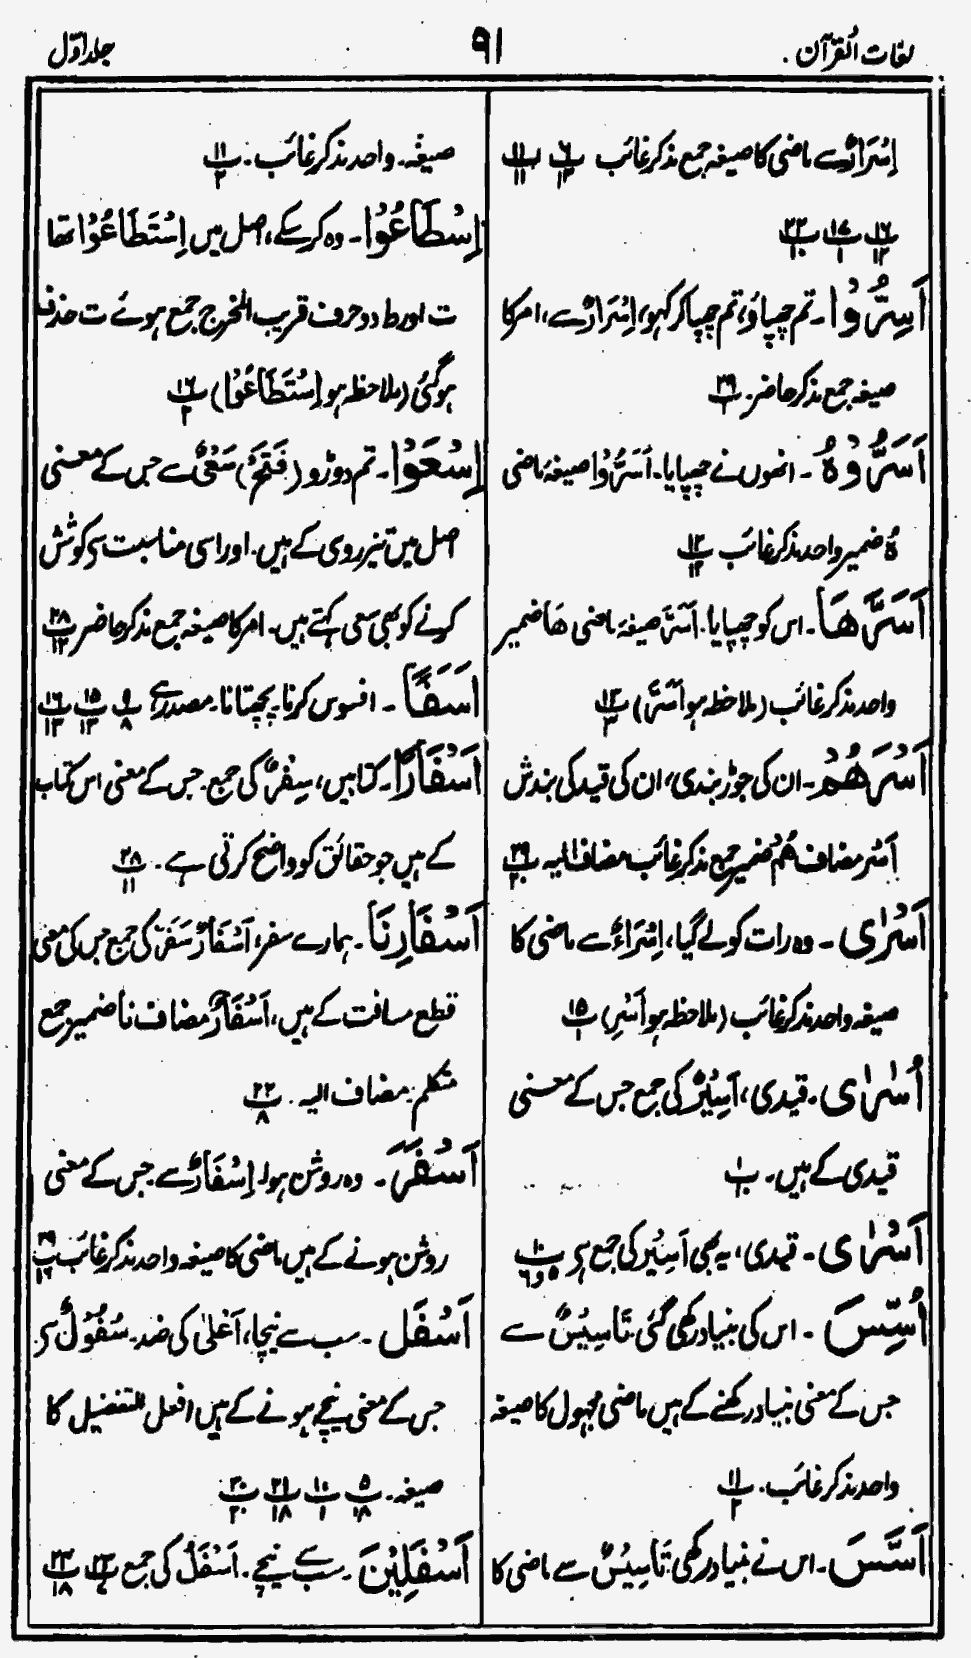 لغات القرآن
۹۱
جلد اوّل
اِسْرَارٌ سے ماضی کا صیغہ جمع مذکر غائب ۶/۱۲ پ ۱۱/۱۱ پ
۱۶/۱۲ پ ۱۷/۱ پ ۲۲/۱۰ پ
اَسِرُّوْا۔ تم چھپاؤ، تم چھپا کر کہو، اِسْرَارٌ سے، امر کا
صیغہ جمع مذکر حاضر۔ ۲۹/۱ پ
اَسَرُّوْهُ۔ انھوں نے چھپایا۔ اَسَرُّوْا صیغۂ ماضی
هُ ضمیر واحد مذکر غائب ۱۲/۱۲ پ
اَسَرَّهَا۔ اس کو چھپایا۔ اَسَرَّ صیغۂ ماضی هَا ضمیر
واحد مذکر غائب (ملاحظہ ہو اَسَرَّ) ۱۳/۳ پ
اَسْرَهُمْ۔ ان کی جوڑ بندی، ان کی قید کی بندش
اَسْر مضاف هُمْ ضمیر جمع مذکر غائب مضاف الیہ ۲۹/۲۰ پ
اَسْرٰى۔ وہ رات کو لے گیا، اِسْرَاءٌ سے ماضی کا
صیغہ واحد مذکر غائب (ملاحظہ ہو اَسْرِ) ۱۵/۱ پ
اُسٰرٰى۔ قیدی، اَسِيْرٌ کی جمع جس کے معنی
قیدی کے ہیں۔ ۱/۱۰ پ
اَسْرٰى۔ قیدی، یہ بھی اَسِيْر کی جمع ہے ۱۰/۵ و ۶ پ
اُسِّسَ۔ اس کی بنیاد رکھی گئی تَاسِيْسٌ سے
جس کے معنی بنیاد رکھنے کے ہیں ماضی مجہول کا صیغہ
واحد مذکر غائب۔ ۱۱/۲ پ
اَسَّسَ۔ اس نے بنیاد رکھی تَاسِيْسٌ سے ماضی کا
صیغہ۔ واحد مذکر غائب۔ ۱۱/۲ پ
اِسْطَاعُوْا۔ وہ کر سکے، اصل میں اِسْتَطَاعُوْا تھا
ت اور ط دو حروف قریب المخرج جمع ہوئے ت حذف
ہو گئی (ملاحظہ ہو اِسْتَطَاعُوْا) ۱۶/۲ پ
اِسْعَوْا۔ تم دوڑو (فَتَحَ) سَعْیٌ سے جس کے معنی
اصل میں تیز روی کے ہیں۔ اور اسی مناسبت سے کوشش
کرنے کو بھی سعی کہتے ہیں۔ امر کا صیغہ جمع مذکر حاضر ۲۸/۱۲ پ
اَسَفًا۔ افسوس کرنا۔ پچھتانا۔ مصدر ہے ۹/۸ پ ۱۵/۱۳ پ ۱۶/۱۳ پ
اَسْفَارًا۔ کتابیں، سِفْرٌ کی جمع۔ جس کے معنی اس کتاب
کے ہیں جو حقائق کو واضح کرتی ہے۔ ۲۸/۱۱ پ
اَسْفَارِنَا۔ ہمارے سفر، اَسْفَارٌ سَفَرٌ کی جمع جس کی معنی
قطع مسافت کے ہیں، اَسْفَارٌ مضاف نا ضمیر جمع
متکلم۔ مضاف الیہ۔ ۲۲/۸ پ
اَسْفَرَ۔ وہ روشن ہوا۔ اِسْفَارٌ سے۔ جس کے معنی
روشن ہونے کے ہیں ماضی کا صیغہ واحد مذکر غائب ۲۹/۱۶ پ
اَسْفَل۔ سب سے نیچا، اَعْلیٰ کی ضد۔ سُفُوْلٌ سے
جس کے معنی نیچے ہونے کے ہیں افعل التفضیل کا
صیغہ۔ ۵/۱۸ پ ۱۰/۱ پ ۲۱/۱۸ پ ۳۰/۲۰ پ
اَسْفَلِيْنَ۔ سب سے نیچے۔ اَسْفَلُ کی جمع ۲۳/۷ پ ۲۴/۱۸ پ